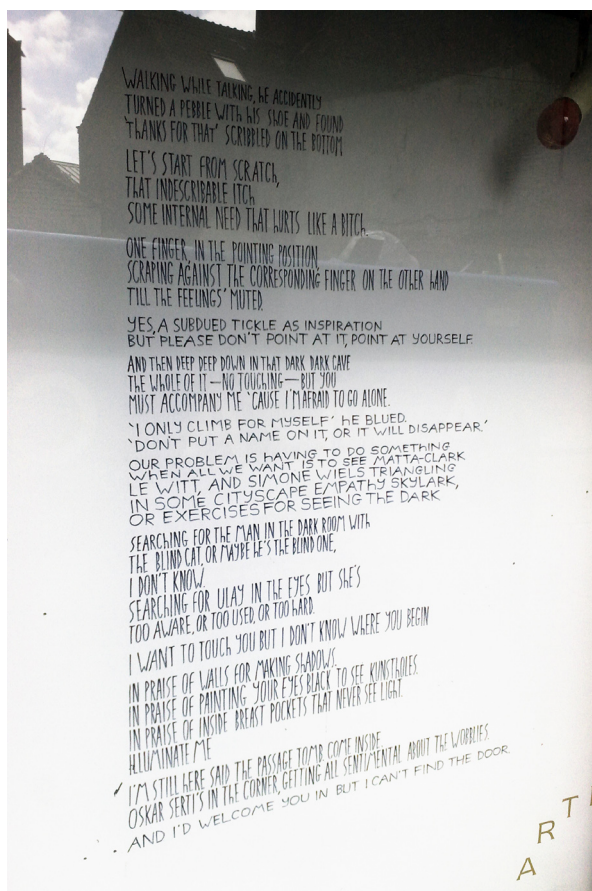 WALKING WHILE TALKING, HE ACCIDENTLY
TURNED A PEBBLE WITH HIS SHOE AND FOUND
'THANKS FOR THAT' SCRIBBLED ON THE BOTTOM
LET'S START FROM SCRATCH,
THAT INDESCRIBABLE ITCH
SOME INTERNAL NEED THAT HURTS LIKE A BITCH.
ONE FINGER, IN THE POINTING POSITION
SCRAPING AGAINST THE CORRESPONDING FINGER ON THE OTHER HAND
TILL THE FEELINGS' MUTED.
YES, A SUBDUED TICKLE AS INSPIRATION
BUT PLEASE DON'T POINT AT IT, POINT AT YOURSELF.
AND THEN DEEP DEEP DOWN IN THAT DARK DARK CAVE
THE WHOLE OF IT – NO TOUCHING – BUT YOU
MUST ACCOMPANY ME 'CAUSE I'M AFRAID TO GO ALONE.
'I ONLY CLIMB FOR MYSELF' HE BLUED.
'DON'T PUT A NAME ON IT, OR IT WILL DISAPPEAR.'
OUR PROBLEM IS HAVING TO DO SOMETHING
WHEN ALL WE WANT IS TO SEE MATTA-CLARK
LE WITT, AND SIMONE WIELS TRIANGLING
IN SOME CITYSCAPE EMPATHY SKYLARK,
OR EXERCISES FOR SEEING THE DARK
SEARCHING FOR THE MAN IN THE DARK ROOM WITH
THE BLIND CAT, OR MAYBE HE'S THE BLIND ONE,
I DON'T KNOW.
SEARCHING FOR ULAY IN THE EYES BUT SHE'S
TOO AWARE, OR TOO USED, OR TOO HARD.
I WANT TO TOUCH YOU BUT I DON'T KNOW WHERE YOU BEGIN
IN PRAISE OF WALLS FOR MAKING SHADOWS.
IN PRAISE OF PAINTING YOUR EYES BLACK TO SEE KUNSTHOLES.
IN PRAISE OF INSIDE BREAST POCKETS THAT NEVER SEE LIGHT.
ILLUMINATE ME
I'M STILL HERE SAID THE PASSAGE TOMB COME INSIDE
OSKAR SERTI'S IN THE CORNER, GETTING ALL SENTIMENTAL ABOUT THE WOBBLIES
AND I'D WELCOME YOU IN BUT I CAN'T FIND THE DOOR.
ART